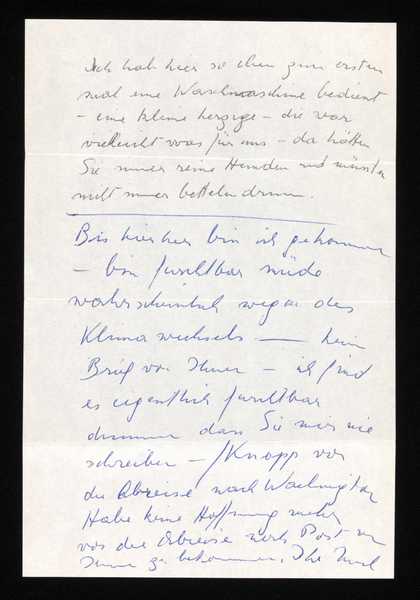 Ich hab hier so eben zum ersten
mal eine Waschmaschine bedient
- eine kleine herzige - die wär
vielleicht was für uns - da hätten
Sie immer reine Hemden und müssten
nicht immer betteln drum.
Bis hierher bin ich gekommen
- bin furchtbar müde
wahrscheinlich wegen des
Klimawechsels — kein
Brief von Ihnen - ich find
es eigentlich furchtbar
dumm dass Sie mir nie
schreiben - / Knapp vor
der Abreise nach Washington
Habe keine Hoffnung mehr
vor der Abreise noch Post von
Ihnen zu bekommen. Ihr